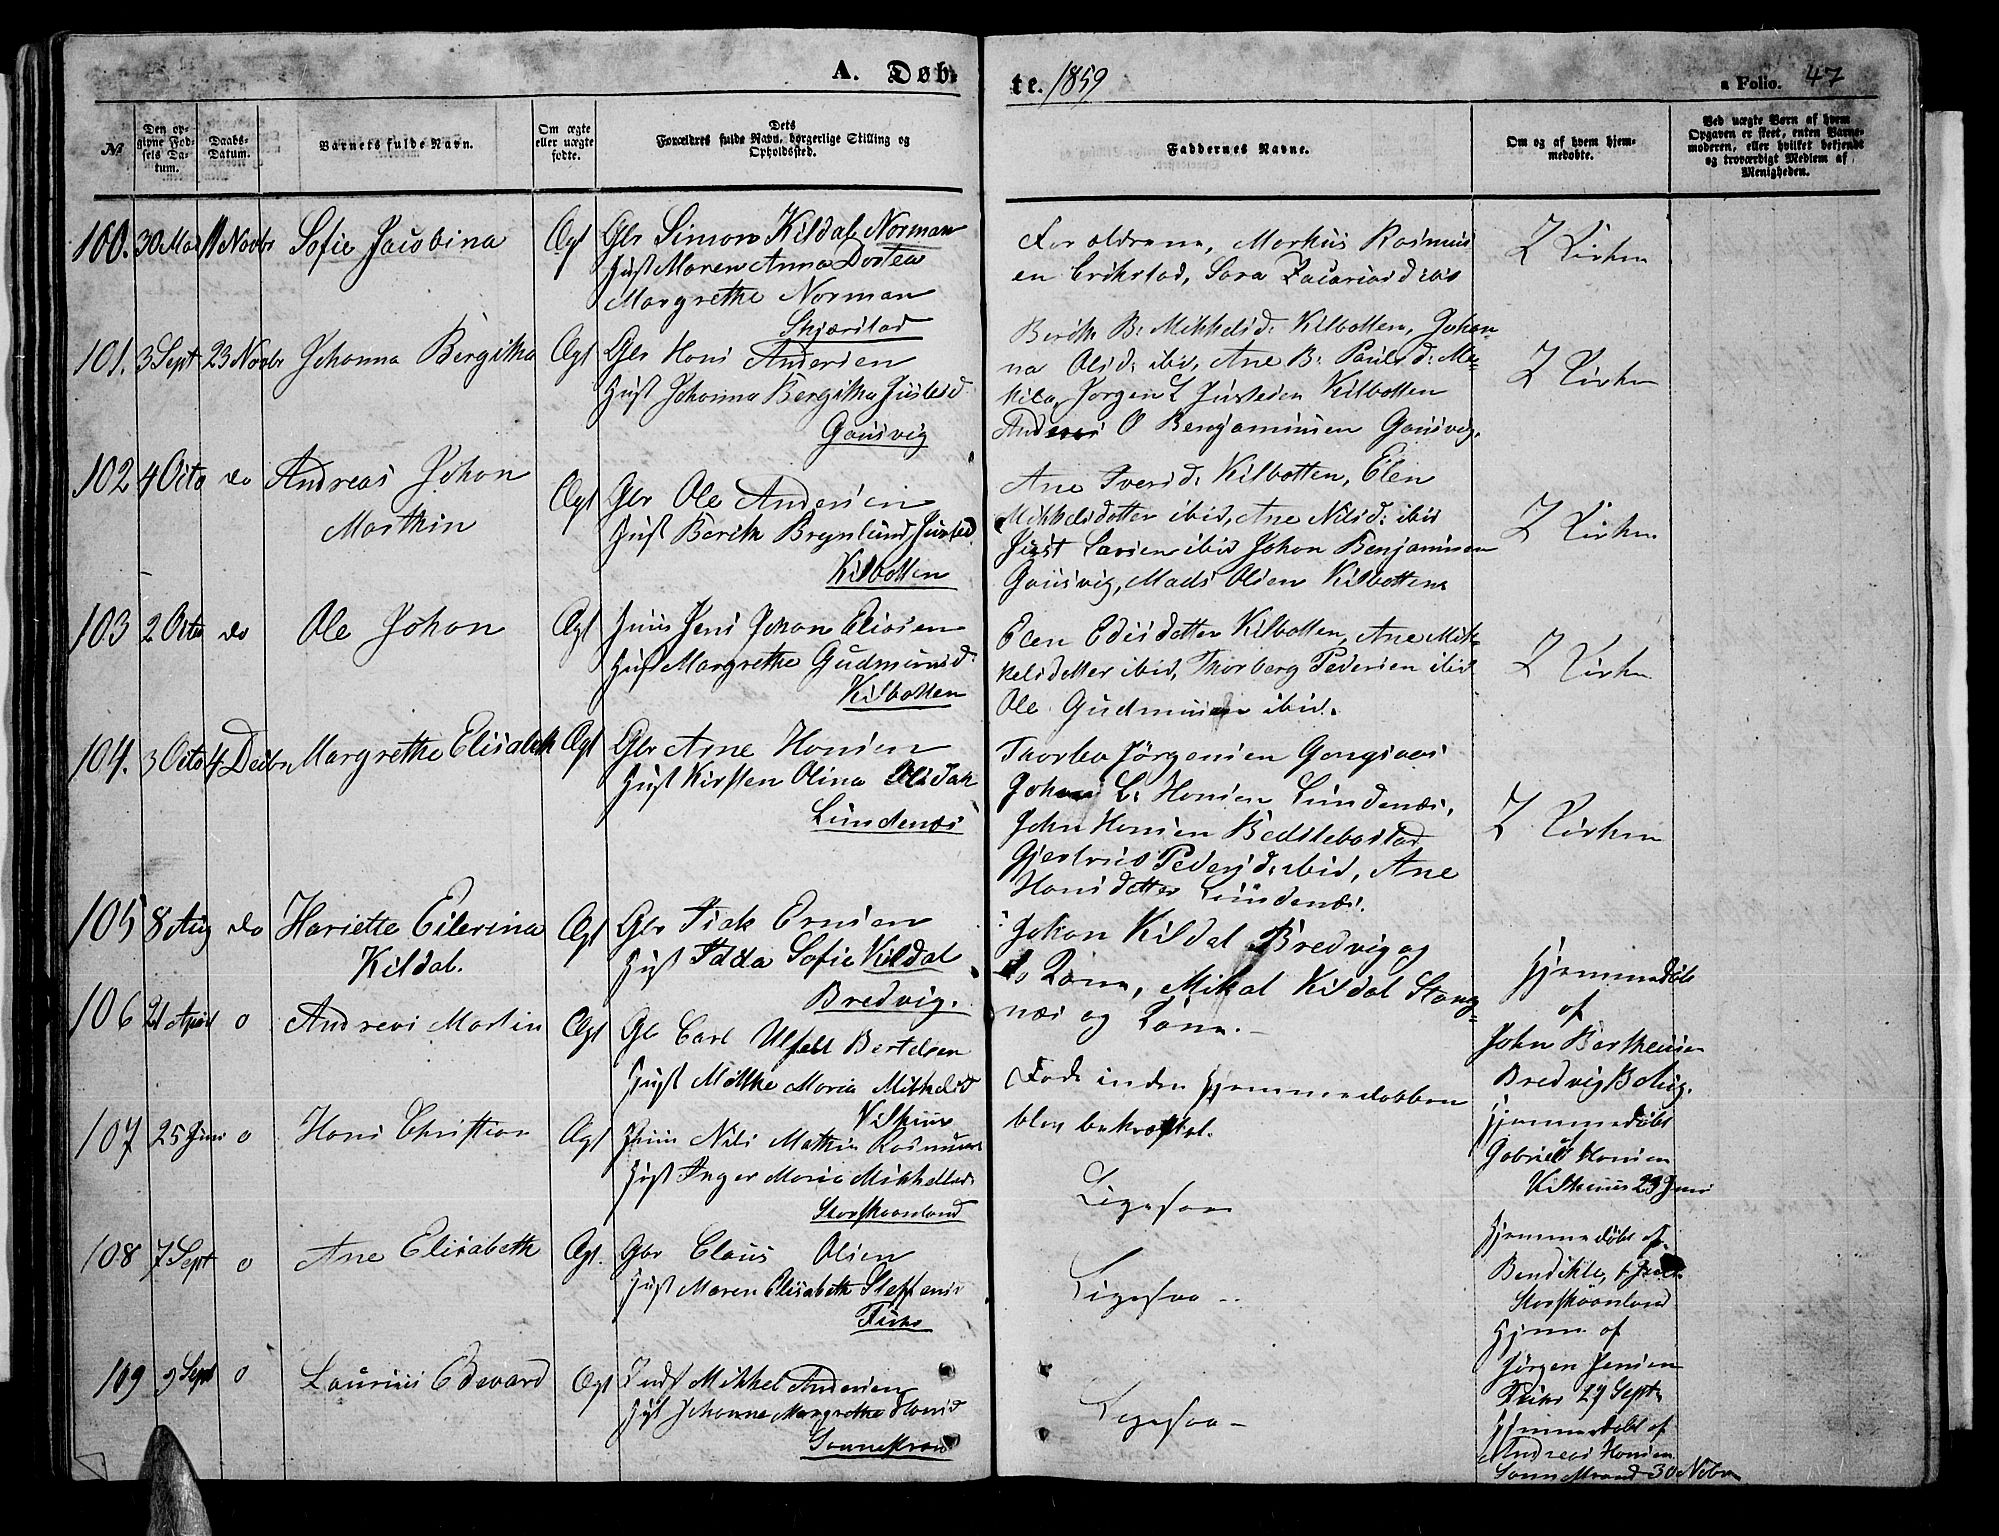 A. Døb-
te. 1859
a Folio. 47
№
Den op-
givne Fød-
sels Da-
tum.
Daabs-
Datum.
Barnets fulde Navn.
Om ægte
eller uægte
fødte.
Dets
Forældres fulde Navn, borgerlige Stilling og
Opholdssted.
Faddernes Navne.
Om og af hvem hjem-
medøbte.
Ved uægte Børn af hvem
Opgaven er skeet, enten Barne-
moderen, eller hvilket bekjendt
og troværdigt Medlem af
Menigheden.
100. 30 Mai 11 Novbr Sofie Jacobina Ægt Gbr Simon Kildal Norman
Hust Maren Anna Dortea
Margrethe Norman
Skjærstad
Forældrene, Markus Rasmus
en Erikstad, Sara Zacariasd ibid
I Kirken
101. 3 Sept 23 Novbr Johanna Bergitha Ægt Gbr Hans Andersen
Hust Johanna Bergitha Justsd
Gausvig
Berith B: Mikkelsd: Kilbotten, Johan-
na Olsd: ibid, Ane B: Paulsd: Me-
kila, Jørgen L Justesen Kilbotten
Anders O Benjaminsen Gausvig.
I Kirken
102 4 Octo do Andreas Johan
Marthin
Ægt Gbr Ole Andersen
Hust Berith Brynlund Justsd
Kilbotten
Ane Iversd: Kilbotten, Elen
Mikkelsdatter ibid, Ane Nilsd: ibid
Just Larsen ibid Johan Benjaminsen
Gausvig, Mads Olsen Kilbotten.
I Kirken
103 2 Octo do Ole Johan Ægt Huus Jens Johan Eliasen
Hust Margrethe Gudmunsd:
Kilbotten
Elen Edisdatter Kilbotten, Ane Mik-
kelsdatter ibid, Thorberg Pedersen ibid
Ole Gudmunsen ibid.
I Kirken
104. 3 Octo 4 Decbr Margrethe Elisabeth Ægt Gbr Arne Hansen
Hust Kirsten Olina Olsdatr
Lundenæs
Thorbø Jørgensen Gangsaas
Johan L: Hansen Lundenæs,
John Hansen Bedstebostad
Gjertrud Pedersd: ibid, Ane
Hansdatter Lundenæs.
I Kirken
105 8 Aug do Hariette Eilerina
Kildal.
Ægt Gbr Isak Ernsen
Hust Adda Sofie Kildal
Bredvig.
Johan Kildal Bredvig og
ds Kone, Mikal Kildal Stang-
næs og Kone.
Hjemmedøbt
af
John Barthensen
Bredvig 13 Aug.
106 21 April o Andreas Martin Ægt Gbr Carl Ulfelt Bertelsen
Hust Mathe Maria Mikkelsd
Vilhuus
Fadd inden Hjemmedaaben
blev bekræftet.
Hjemmedøbt
af
Gabriel Hansen
Vilhuus 23 Juni
107 25 Juni o Hans Christian Ægt Huus Nils Mathis Rasmuss
Hust Inger Maria Mikkelsd:
Storskaanland
Ligesaa
Hjemmedøbt af
Bendikte
Storskaanland
108 7 Sept o Ane Elisabeth Ægt. Gbr Claus Olsen
Hust Maren Elisabeth Steffensd
Fuske
Ligesaa -
Hjem. af
Jørgen Jensen
29 Sept
109 9 Sept o Laurits Edevard Ægt Inds Mikkel Andersen
Hust Johanne Margrethe Hansd
Sannestrand
Ligesaa -
Hjemmedøbt af
Andreas Hansen
Sannestrand 30 Novbr